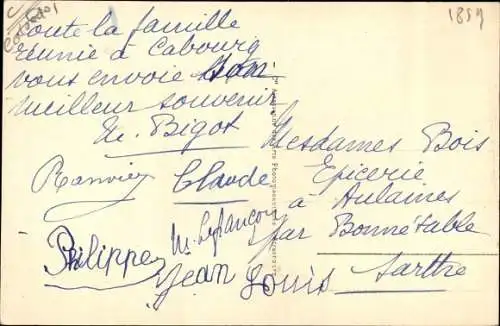 1859
Calvados
Toute la famille
réunie à Cabourg
vous envoie son
meilleur souvenir
M. Bigot
Claude
Philippe
M. Lefrançois
Jean Louis
Mesdames Bois
Epicerie
à Aulaines
par Bonnétable
Sarthe